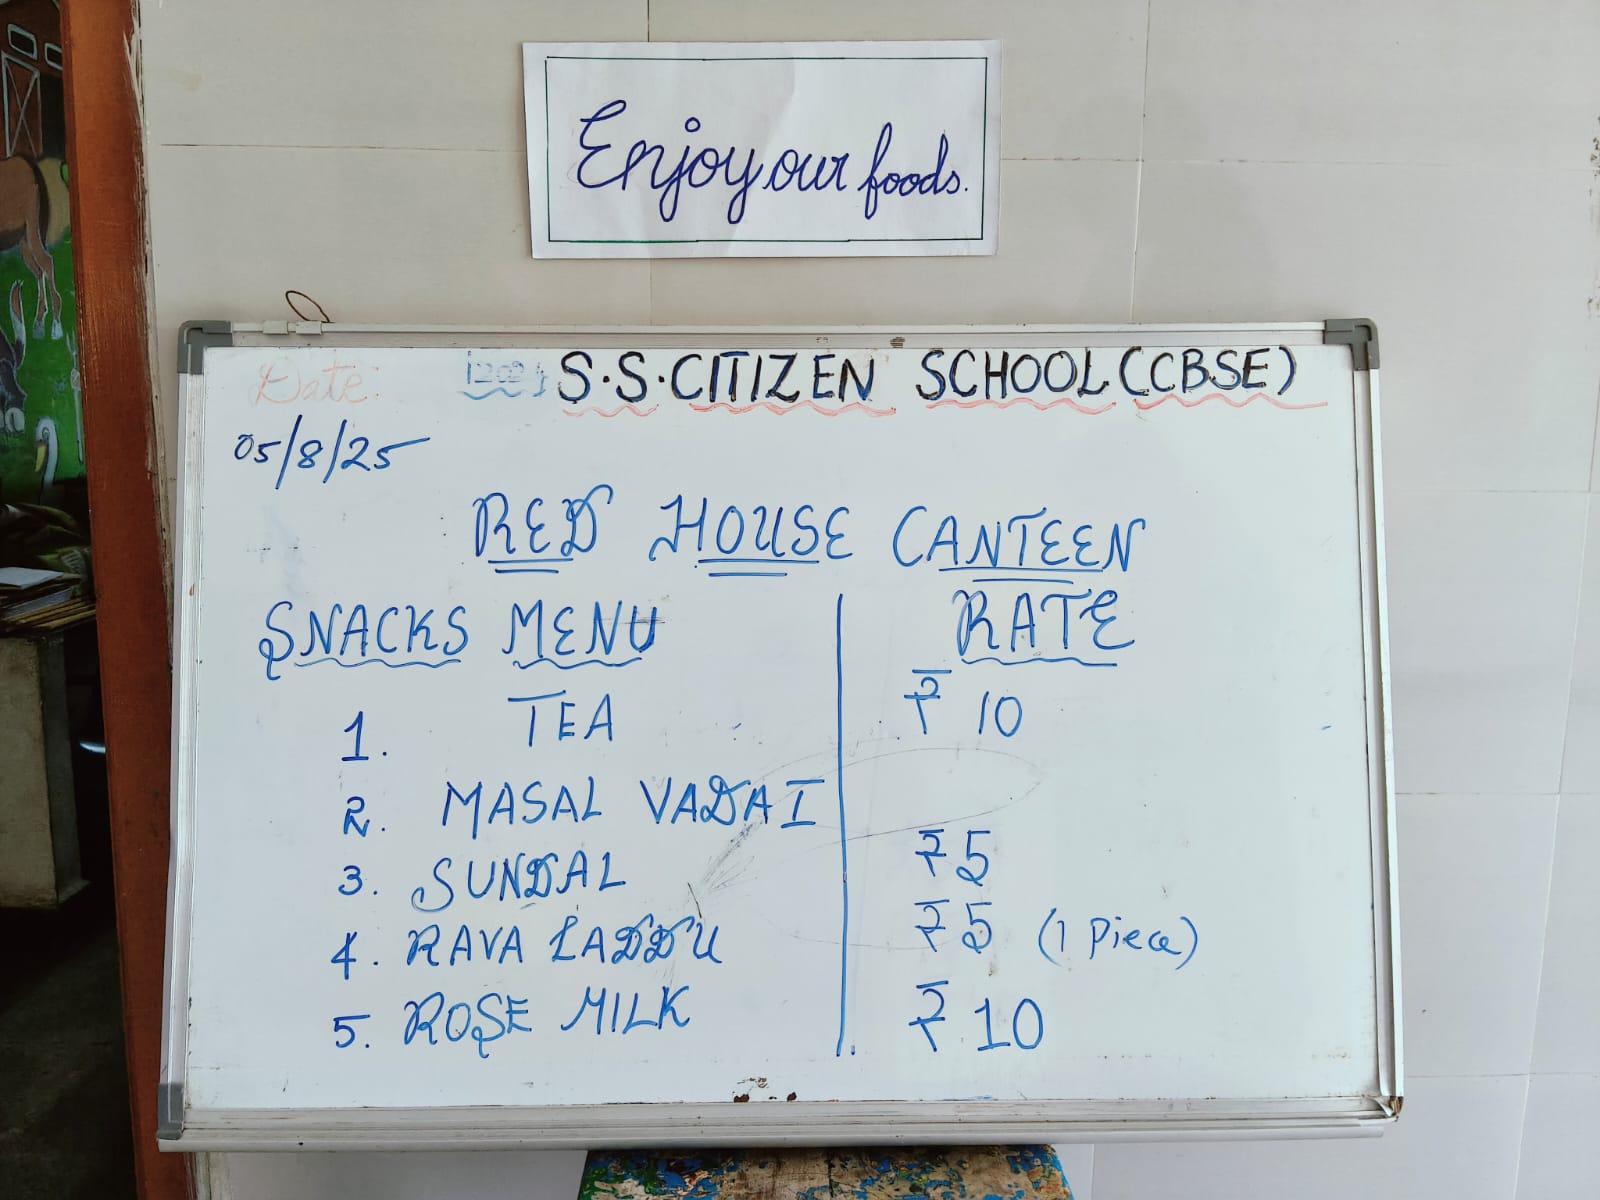 Enjoy our foods.
Date:
S.S.CITIZEN SCHOOL (CBSE)
05/8/25
RED HOUSE CANTEEN
SNACKS MENU RATE
1. TEA ₹ 10
2. MASAL VADAI
3. SUNDAL ₹ 5
4. RAVA LADDU ₹ 5 (1 Piece)
5. ROSE MILK ₹ 10